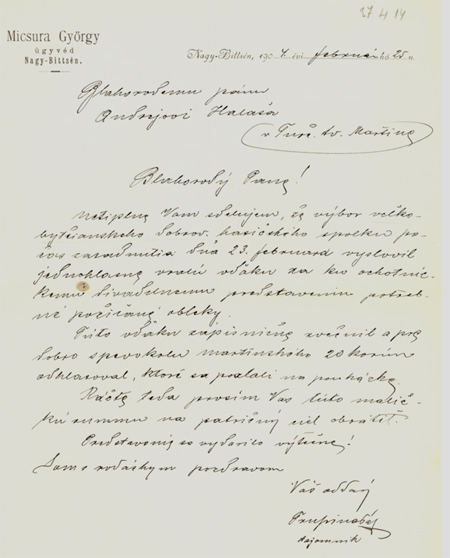 27 4 14
Micsura György
ügyvéd
Nagy-Bittsén.
Nagy-Bittsén, 190 évi február hó 25 n.
Blahorodému pánu
Andrejovi Halaša
v Turč. sv. Martine
Blahorodý Pane!
Vám sdelujem, že výbor veľko-
bytčianskeho dobrov. hasičského spolku po-
čas zasadnutia dňa 23. februara vyslovil
jednohlasne vrelú vďaku za ku ochotníc-
kemu divadelnemu predstaveniu potreb-
né požičané obleky.
Túto vďaku zapisnične a pre
dobro spevokolu martinského 20 korún
odhlasoval, ktoré sa poslali na poukážke.
Ráčte teda prosím Vas túto malič-
kú summu na patričný cieľ obrátiť.
Predstavenie sa vydarilo výtečne!
pozdravom
Váš oddaný
tajomník